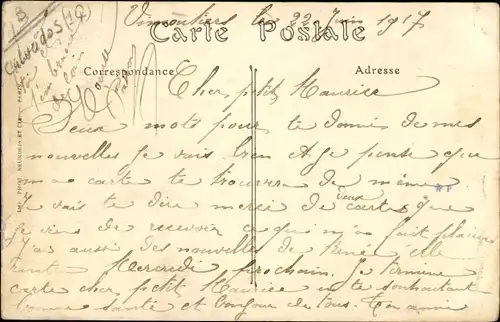 Vimoutiers les 22 Juin 1917
Carte Postale
Correspondance
Adresse
Calvados
Cher petit Maurice
Deux mots pour te donné de mes
nouvelles je vais bien et je pense que
ma carte te trouvera de même
Je vais te dire merci de deux cartes que
je viens de recevoir ce qui m'a fait plaisir
J'ai aussi des nouvelles de René elle
rentre Mercredi prochain. Je termine
carte cher petit Maurice en te souhaitant
bonne santé et bonjour de tous. Ton amie